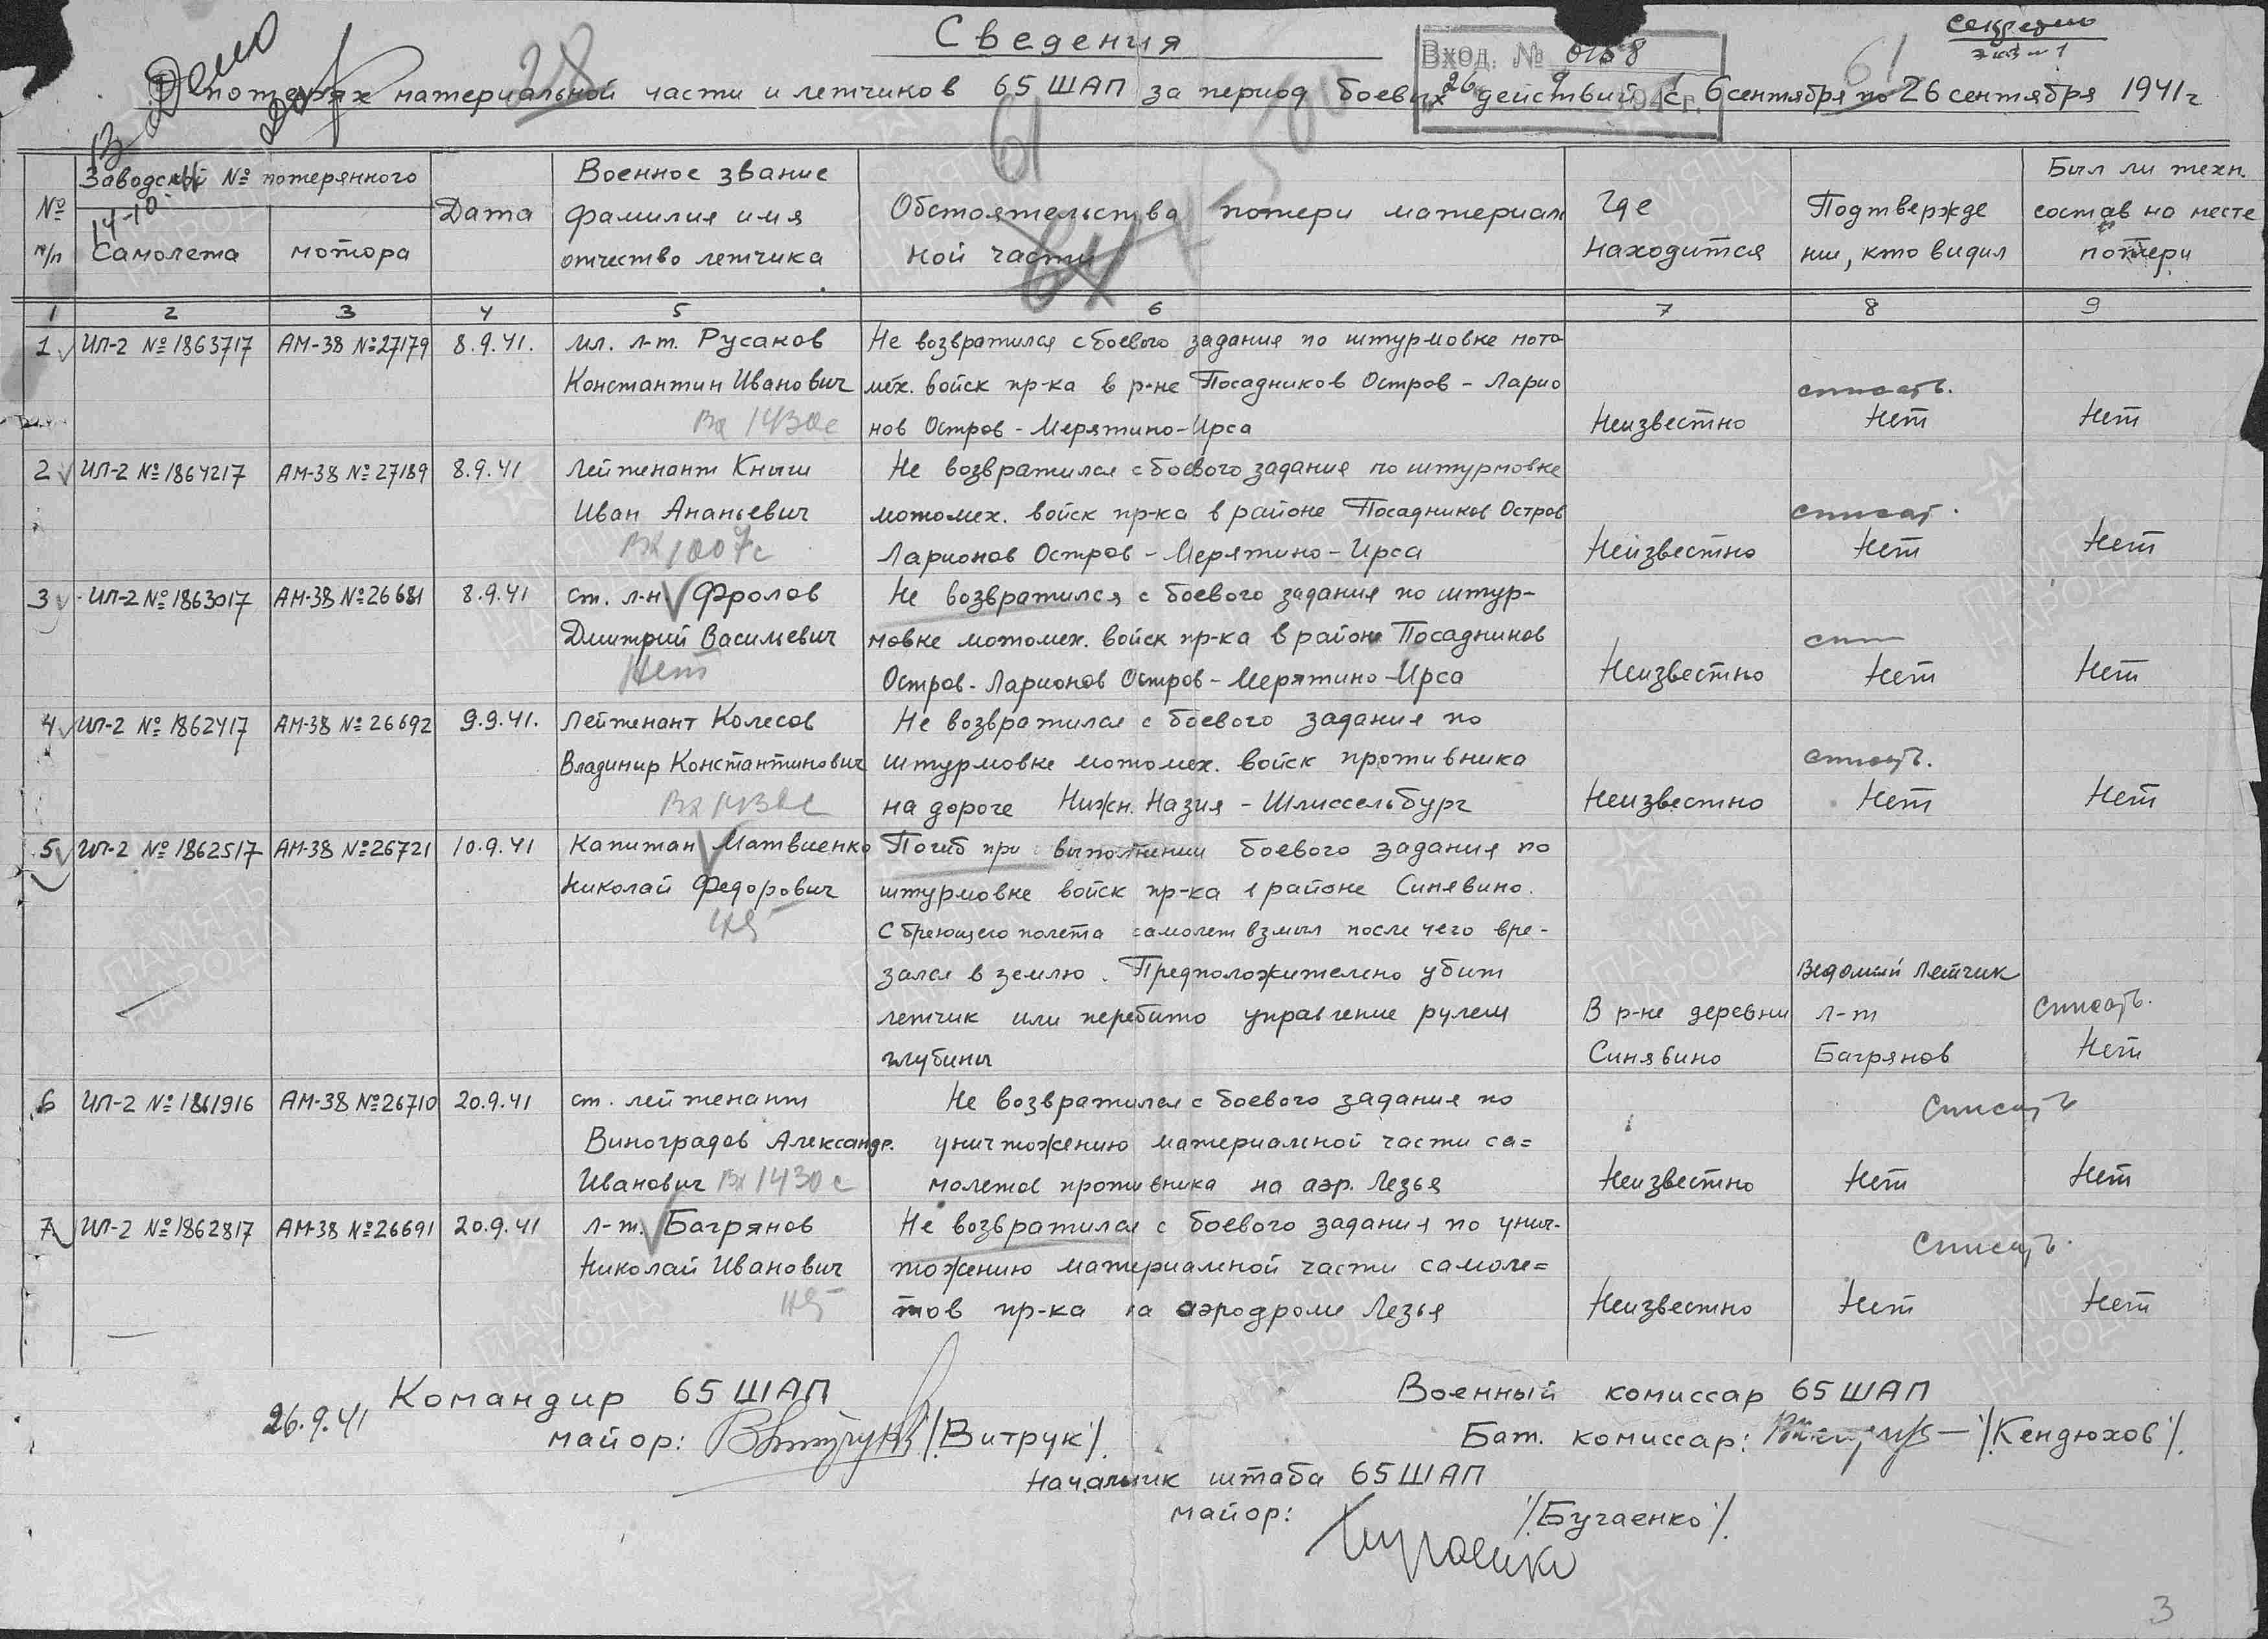 Секретно
экз № 1
Сведения
Вход. № 0158
В Дело
28
61
о потерях материальной части и летчиков 65 ШАП за период боевых действий с 6 сентября по 26 сентября 1941 г
61
14-10
№ п/п
Заводской № потерянного
Самолета
мотора
Дата
Военное звание
фамилия имя
отчество летчика
Обстоятельства потери материаль
ной части
Где
находится
Подтвержде
ние, кто видил
Был ли техн.
состав на месте
потери
1 2 3 4 5 6 7 8 9
1 ИЛ-2 № 1863717 АМ-38 № 27179 8.9.41. мл. л-т. Русаков Не возвратился с боевого задания по штурмовке мото
Константин Иванович мех. войск пр-ка в р-не Посадников Остров - Ларио списать.
Вх 1430с нов Остров - Мерятино - Ирса Неизвестно Нет Нет
2 ИЛ-2 № 1864217 АМ-38 № 27189 8.9.41 Лейтенант Кныш Не возвратился с боевого задания по штурмовке
Иван Ананьевич мотомех. войск пр-ка в районе Посадников Остров списат.
Вх 1007с Ларионов Остров - Мерятино - Ирса Неизвестно Нет Нет
3 ИЛ-2 № 1863017 АМ-38 № 26681 8.9.41 ст. л-н Фролов Не возвратился с боевого задания по штур-
Дмитрий Васильевич мовке мотомех. войск пр-ка в районе Посадников
Нет Остров - Ларионов Остров - Мерятино - Ирса Неизвестно Нет Нет
4 ИЛ-2 № 1862417 АМ-38 № 26692 9.9.41. Лейтенант Колесов Не возвратился с боевого задания по
Владимир Константинович штурмовке мотомех. войск противника списать.
Вх 1430с на дороге Нижн. Назия - Шлиссельбург Неизвестно Нет Нет
5 ИЛ-2 № 1862517 АМ-38 № 26721 10.9.41 Капитан Матвиенко Погиб при выполнении боевого задания по
Николай Федорович штурмовке войск пр-ка в районе Синявино.
С бреющего полета самолет взмыл после чего вре-
зался в землю. Предположительно убит Ведомый летчик
летчик или перебито управление рулем В р-не деревни л-т Списать.
глубины Синявино Багрянов Нет
6 ИЛ-2 № 1861916 АМ-38 № 26710 20.9.41 ст. лейтенант Не возвратился с боевого задания по Списать
Виноградов Александр. уничтожению материальной части са=
Иванович Вх 1430с молетов противника на аэр. Лезья Неизвестно Нет Нет
7 ИЛ-2 № 1862817 АМ-38 № 26691 20.9.41 л-т. Багрянов Не возвратился с боевого задания по унич- Списать.
Николай Иванович тожению материальной части самоле=
тов пр-ка на аэродроме Лезья Неизвестно Нет Нет
Командир 65 ШАП
26.9.41
майор: /Витрук/.
Военный комиссар 65 ШАП
Бат. комиссар: /Кендюхов/.
Начальник штаба 65 ШАП
майор: /Бугаенко/.
3
ПАМЯТЬ НАРОДА